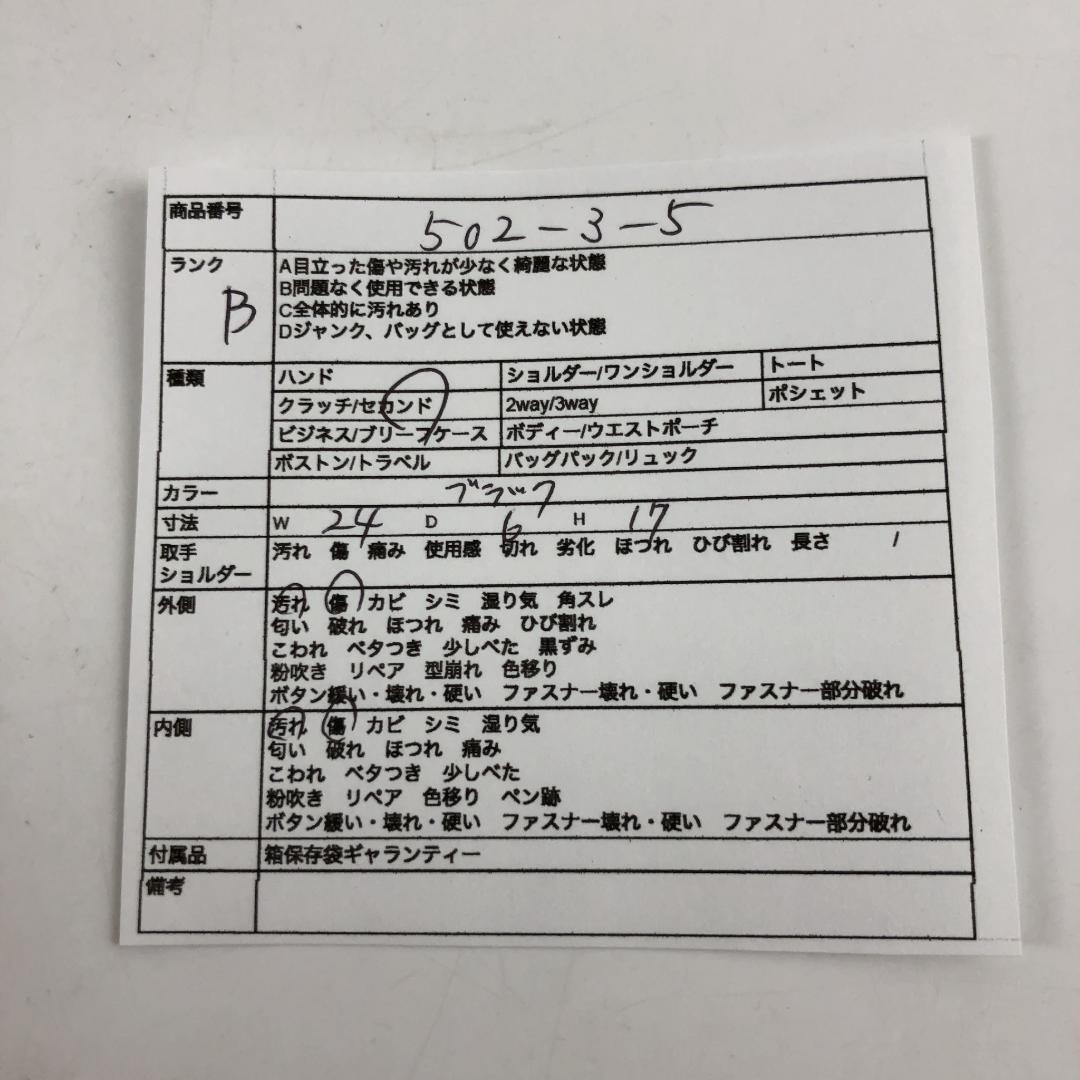 商品番号 502-3-5
ランク B A目立った傷や汚れが少なく綺麗な状態
B問題なく使用できる状態
C全体的に汚れあり
Dジャンク、バッグとして使えない状態
種類 ハンド ショルダー/ワンショルダー トート
クラッチ/セカンド 2way/3way ポシェット
ビジネス/ブリーフケース ボディー/ウエストポーチ
ボストン/トラベル バッグパック/リュック
カラー ブラック
寸法 W 24 D 6 H 17
取手 汚れ 傷 痛み 使用感 切れ 劣化 ほつれ ひび割れ 長さ /
ショルダー
外側 汚れ 傷 カビ シミ 湿り気 角スレ
匂い 破れ ほつれ 痛み ひび割れ
こわれ ベタつき 少しべた 黒ずみ
粉吹き リペア 型崩れ 色移り
ボタン緩い・壊れ・硬い ファスナー壊れ・硬い ファスナー部分破れ
内側 汚れ 傷 カビ シミ 湿り気
匂い 破れ ほつれ 痛み
こわれ ベタつき 少しべた
粉吹き リペア 色移り ペン跡
ボタン緩い・壊れ・硬い ファスナー壊れ・硬い ファスナー部分破れ
付属品 箱保存袋ギャランティー
備考